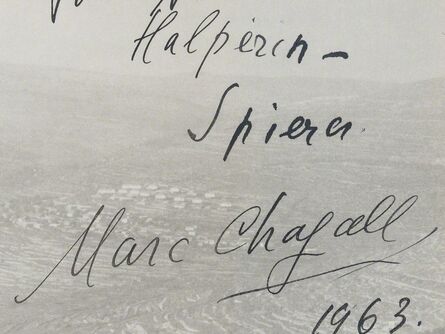 Halpérin -
Spierer
Marc Chagall
1963.